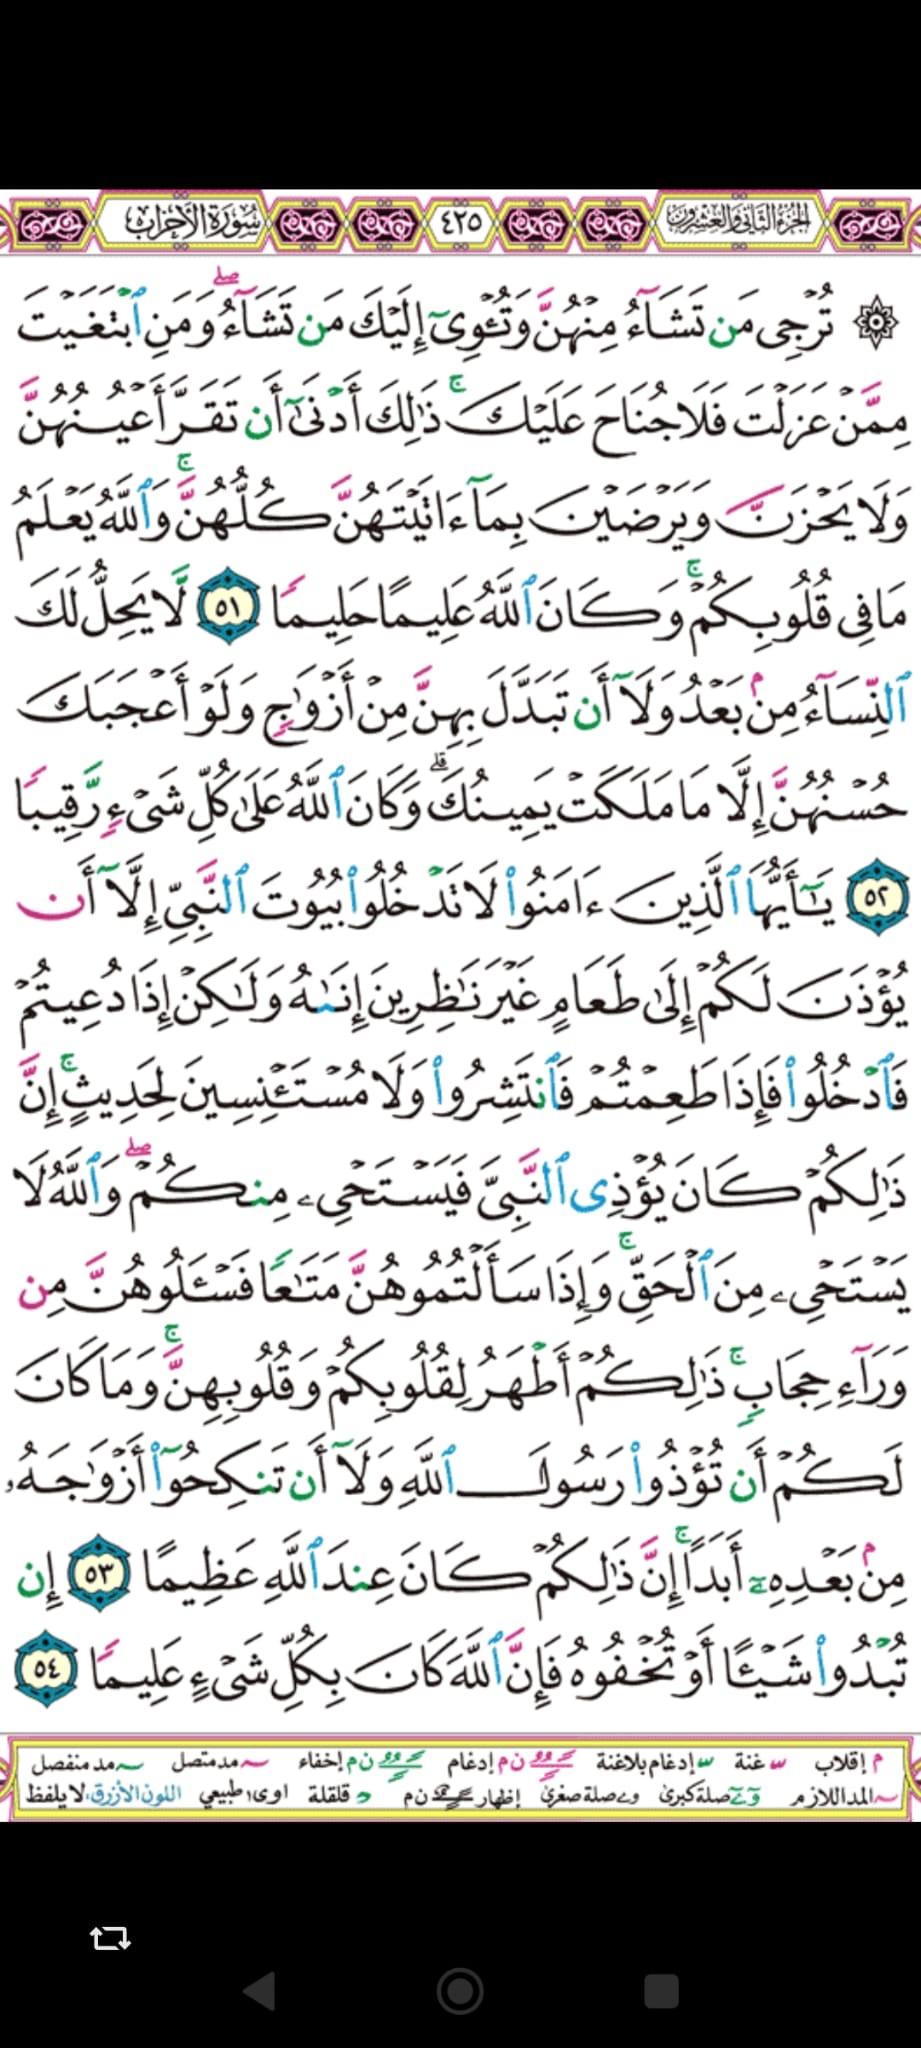 الجزء الثاني والعشرون
٤٢٥
سورة الأحزاب
۞ تُرْجِى مَن تَشَآءُ مِنْهُنَّ وَتُـْٔوِىٓ إِلَيْكَ مَن تَشَآءُ ۖ وَمَنِ ٱبْتَغَيْتَ
مِمَّنْ عَزَلْتَ فَلَا جُنَاحَ عَلَيْكَ ۚ ذَٰلِكَ أَدْنَىٰٓ أَن تَقَرَّ أَعْيُنُهُنَّ
وَلَا يَحْزَنَّ وَيَرْضَيْنَ بِمَآ ءَاتَيْتَهُنَّ كُلُّهُنَّ ۚ وَٱللَّهُ يَعْلَمُ
مَا فِى قُلُوبِكُمْ ۚ وَكَانَ ٱللَّهُ عَلِيمًا حَلِيمًا ٥١ لَّا يَحِلُّ لَكَ
ٱلنِّسَآءُ مِنۢ بَعْدُ وَلَآ أَن تَبَدَّلَ بِهِنَّ مِنْ أَزْوَٰجٍ وَلَوْ أَعْجَبَكَ
حُسْنُهُنَّ إِلَّا مَا مَلَكَتْ يَمِينُكَ ۗ وَكَانَ ٱللَّهُ عَلَىٰ كُلِّ شَىْءٍ رَّقِيبًا
٥٢ يَـٰٓأَيُّهَا ٱلَّذِينَ ءَامَنُوا۟ لَا تَدْخُلُوا۟ بُيُوتَ ٱلنَّبِىِّ إِلَّآ أَن
يُؤْذَنَ لَكُمْ إِلَىٰ طَعَامٍ غَيْرَ نَـٰظِرِينَ إِنَىٰهُ وَلَـٰكِنْ إِذَا دُعِيتُمْ
فَٱدْخُلُوا۟ فَإِذَا طَعِمْتُمْ فَٱنتَشِرُوا۟ وَلَا مُسْتَـْٔنِسِينَ لِحَدِيثٍ ۚ إِنَّ
ذَٰلِكُمْ كَانَ يُؤْذِى ٱلنَّبِىَّ فَيَسْتَحْىِۦ مِنكُمْ ۖ وَٱللَّهُ لَا
يَسْتَحْىِۦ مِنَ ٱلْحَقِّ ۚ وَإِذَا سَأَلْتُمُوهُنَّ مَتَـٰعًا فَسْـَٔلُوهُنَّ مِن
وَرَآءِ حِجَابٍ ۚ ذَٰلِكُمْ أَطْهَرُ لِقُلُوبِكُمْ وَقُلُوبِهِنَّ ۚ وَمَا كَانَ
لَكُمْ أَن تُؤْذُوا۟ رَسُولَ ٱللَّهِ وَلَآ أَن تَنكِحُوٓا۟ أَزْوَٰجَهُۥ
مِنۢ بَعْدِهِۦٓ أَبَدًا ۚ إِنَّ ذَٰلِكُمْ كَانَ عِندَ ٱللَّهِ عَظِيمًا ٥٣ إِن
تُبْدُوا۟ شَيْـًٔا أَوْ تُخْفُوهُ فَإِنَّ ٱللَّهَ كَانَ بِكُلِّ شَىْءٍ عَلِيمًا ٥٤
م إقلاب غنة إدغام بلاغنة ن م إدغام ن م إخفاء مد متصل مد منفصل
المد اللازم صلة كبرىٰ صلة صغرىٰ إظهار ن م قلقلة اوى طبيعي اللون الأزرق لا يلفظ